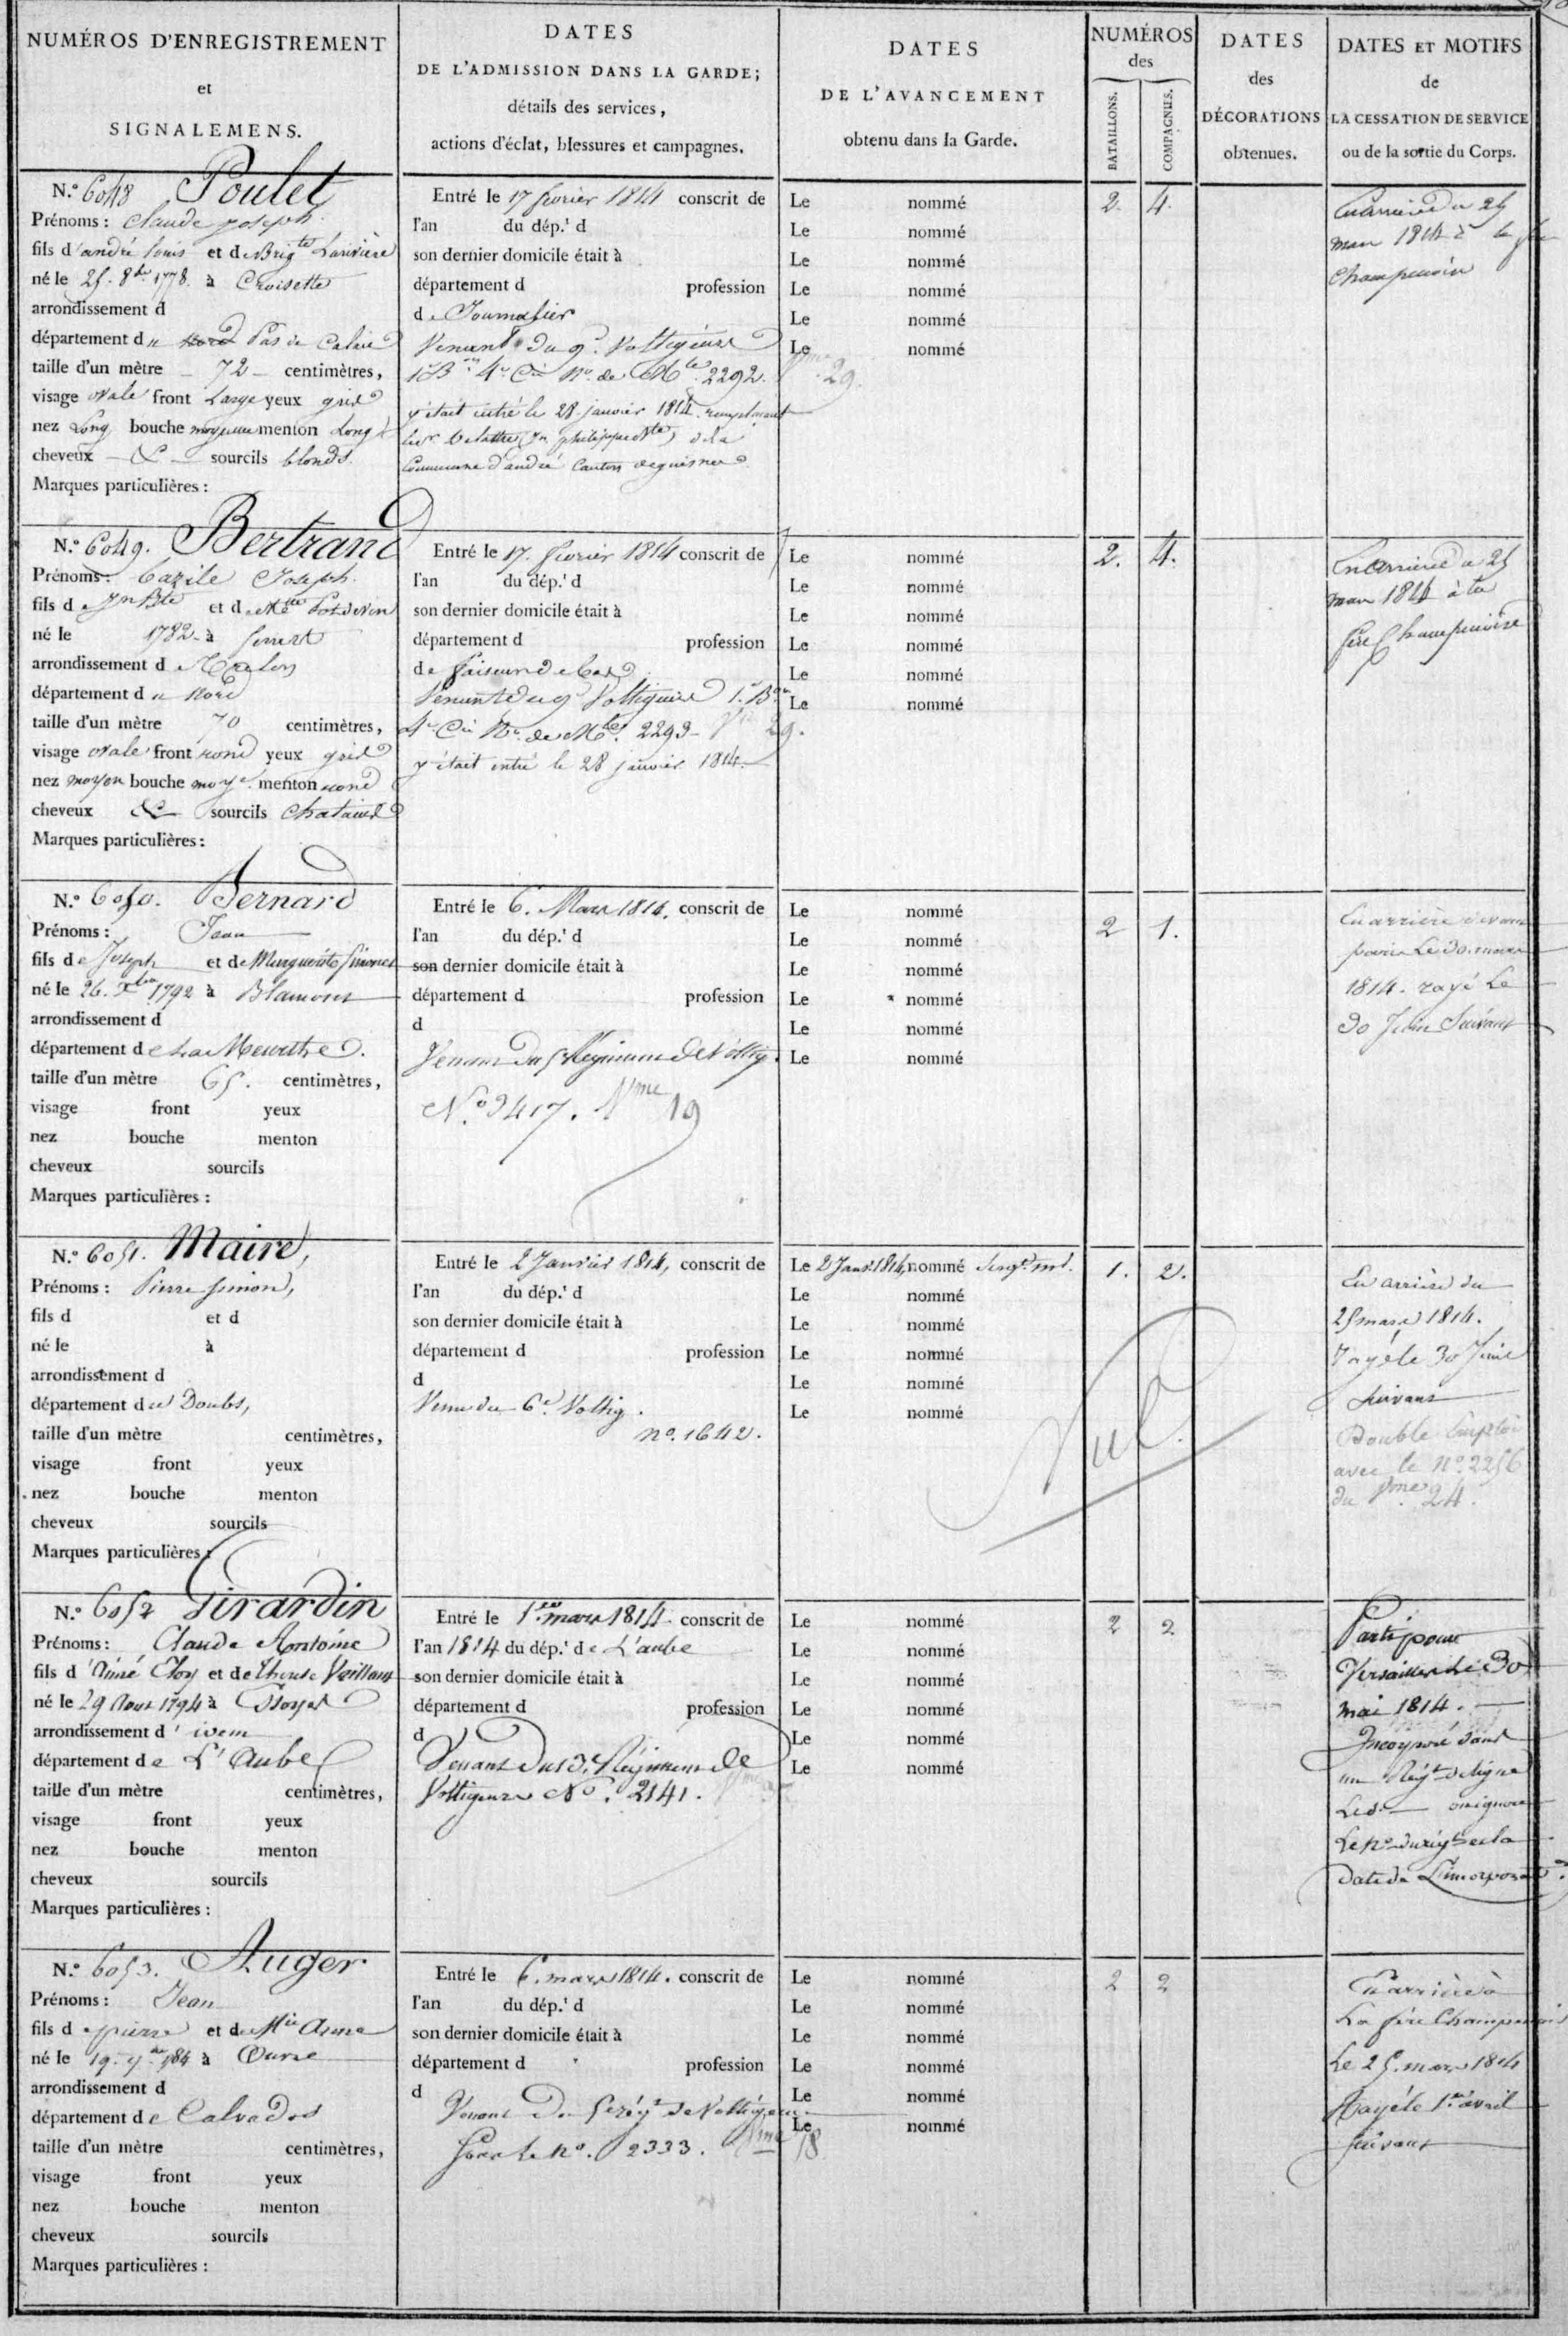 NUMÉROS D'ENREGISTREMENT
et
SIGNALEMENS.
DATES
DE L'ADMISSION DANS LA GARDE;
détails des services,
actions d'éclat, blessures et campagnes.
DATES
DE L'AVANCEMENT
obtenu dans la Garde.
NUMÉROS
des
BATAILLONS.
COMPAGNIES.
DATES
des
DÉCORATIONS
obtenues.
DATES ET MOTIFS
de
LA CESSATION DE SERVICE
ou de la sortie du Corps.
N.° 6048 Poulet
Prénoms : Claude Joseph
fils d'andré Louis et de Brig.te Larivière
né le 25. 8bre 1778. à Croisette
arrondissement d
département du Nord Pas de Calais
taille d'un mètre 72 centimètres,
visage ovale front Large yeux gris
nez Long bouche moyenne menton Long
cheveux & sourcils blonds
Marques particulières :
Entré le 17 fevrier 1814 conscrit de
l'an du dép.t d
son dernier domicile était à
département d profession
de Journalier
Venant du 9.e Voltigeurs
1.er B.on 4.e Cie N.o de M.le 2292.
y était entré le 28 janvier 1814. remplacant
commune d'andré Canton de guisnes
Le nommé
Le nommé
Le nommé
Le nommé
Le nommé
Le nommé
29.
2. 4.
En arriere du 25
mars 1814 à la fère
Champenoise
N.° 6049. Bertrand
Prénoms : Bazile Joseph
fils de Jn Bte et de Potdevin
né le 1782 à
arrondissement d
département du Nord
taille d'un mètre 70 centimètres,
visage ovale front rond yeux gris
nez moyen bouche moye. menton rond
cheveux & sourcils chatains
Marques particulières :
Entré le 17. fevrier 1814 conscrit de
l'an du dép.t d
son dernier domicile était à
département d profession
de faiseur de bas
Venant du 9.e Voltigeurs 1.er B.on
4.e Cie N.o de M.le 2293 29.
y était entré le 28 janvier 1814.
Le nommé
Le nommé
Le nommé
Le nommé
Le nommé
Le nommé
2. 4.
En arriere du 25
mars 1814 à la
fère Champenoise
N.° 6050. Bernard
Prénoms : Jean
fils de Joseph et de Marguerite Simonet
né le 26. Xbre 1792 à Blamont
arrondissement d
département de La Meurthe.
taille d'un mètre 65. centimètres,
visage front yeux
nez bouche menton
cheveux sourcils
Marques particulières :
Entré le 6. Mars 1814. conscrit de
l'an du dép.t d
son dernier domicile était à
département d profession
d
Venant du 5.e Régiment de Voltig.
N.° 3417. Vme 19
Le nommé
Le nommé
Le nommé
Le nommé
Le nommé
Le nommé
2 1.
En arrière devant
paris Le 30. mars
1814. rayé Le
30 Juin Suivant
N.° 6051. Maire,
Prénoms : Pierre Simon,
fils d et d
né le à
arrondissement d
département du Doubs,
taille d'un mètre centimètres,
visage front yeux
nez bouche menton
cheveux sourcils
Marques particulières :
Entré le 2 Janvier 1814, conscrit de
l'an du dép.t d
son dernier domicile était à
département d profession
d
Venu du 6.e Voltig.
n.o 1642.
Le 2 Janv. 1814, nommé Serg.t m.r
Le nommé
Le nommé
Le nommé
Le nommé
Le nommé
1. 2.
Nul.
En arrière du
25 mars 1814.
rayé le 30 Juin
suivant
Double Emploi
avec le N.o 2256
du Vme 24.
N.° 6052 Girardin
Prénoms : Claude Antoine
fils d'Aimé Eloy et de Therese Vaillant
né le 29 Aout 1794 à
arrondissement d' idem
département de L'Aube
taille d'un mètre centimètres,
visage front yeux
nez bouche menton
cheveux sourcils
Marques particulières :
Entré le 1.er mars 1814. conscrit de
l'an 1814 du dép.t de L'aube
son dernier domicile était à
département d profession
d
Venant du 3.e Régiment de
Voltigeurs N.o 2141.
Le nommé
Le nommé
Le nommé
Le nommé
Le nommé
Le nommé
2 2
Parti pour
Versailles Le 30
mai 1814.
Incorporé dans
un Régt de ligne
Led. on ignore
Le n.o du régt et la
date de L'incorporat.on
N.° 6053. Auger
Prénoms : Jean
fils de pierre et de Mie Anne
né le 19. 7bre 1784 à
arrondissement d
département de Calvados
taille d'un mètre centimètres,
visage front yeux
nez bouche menton
cheveux sourcils
Marques particulières :
Entré le 6. mars 1814. conscrit de
l'an du dép.t d
son dernier domicile était à
département d profession
d
Venant du 5.e régt de Voltigeurs
sous le N.o 2333. Vme 18
Le nommé
Le nommé
Le nommé
Le nommé
Le nommé
Le nommé
2 2
En arrière à
La fère Champenoise
Le 25. mars 1814
Rayé le 1.er avril
suivant